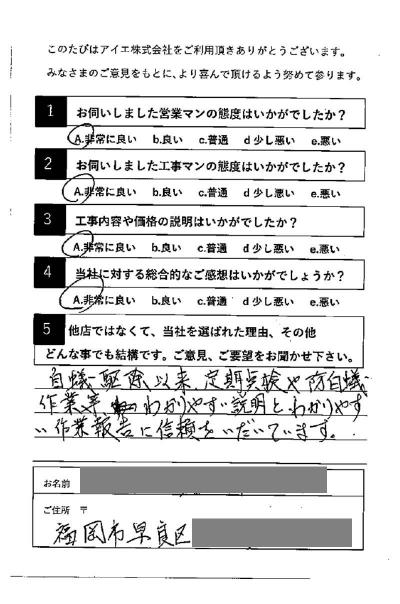 このたびはアイエ株式会社をご利用頂きありがとうございます。
みなさまのご意見をもとに、より喜んで頂けるよう努めて参ります。
1 お伺いしました営業マンの態度はいかがでしたか？
A.非常に良い b.良い c.普通 d 少し悪い e.悪い
2 お伺いしました工事マンの態度はいかがでしたか？
A.非常に良い b.良い c.普通 d 少し悪い e.悪い
3 工事内容や価格の説明はいかがでしたか？
A.非常に良い b.良い c.普通 d 少し悪い e.悪い
4 当社に対する総合的なご感想はいかがでしょうか？
A.非常に良い b.良い c.普通 d 少し悪い e.悪い
5 他店ではなくて、当社を選ばれた理由、その他
どんな事でも結構です。ご意見、ご要望をお聞かせ下さい。
白蟻駆除以来、定期点検や防白蟻
作業等 わかりやすい説明とわかりやす
い作業報告に信頼をいだいています。
お名前
ご住所 〒
福岡市早良区